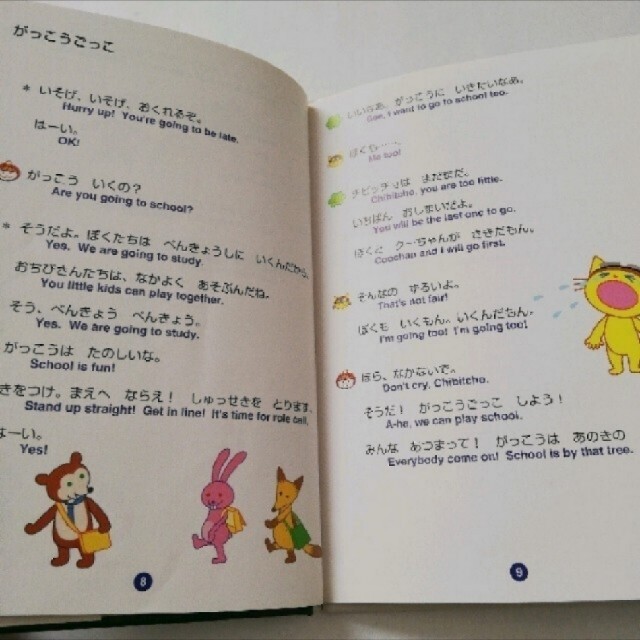 がっこうごっこ
* いそげ、いそげ、おくれるぞ。
Hurry up! You're going to be late.
はーい。
OK!
がっこう いくの?
Are you going to school?
* そうだよ。ぼくたちは べんきょうしに いくんだから、
Yes. We are going to study.
おちびさんたちは、なかよく あそぶんだね。
You little kids can play together.
そう、べんきょう べんきょう。
Yes. We are going to study.
がっこうは たのしいな。
School is fun!
きをつけ。まえへ ならえ! しゅっせきを とります。
Stand up straight! Get in line! It's time for role call.
はーい。
Yes!
8
いいなあ、がっこうに いきたいなあ。
Gee, I want to go to school too.
ぼくも……。
Me too!
チビッチョは まだまだ。
Chibitcho, you are too little.
いちばん おしまいだよ。
You will be the last one to go.
ぼくと クーちゃんが さきだもん。
Coochan and I will go first.
そんなの ずるいよ。
That's not fair!
ぼくも いくもん、いくんだもん。
I'm going too! I'm going too!
ほら、なかないで。
Don't cry, Chibitcho.
そうだ! がっこうごっこ しよう!
A-ha, we can play school.
みんな あつまって! がっこうは あのきの
Everybody come on! School is by that tree.
9